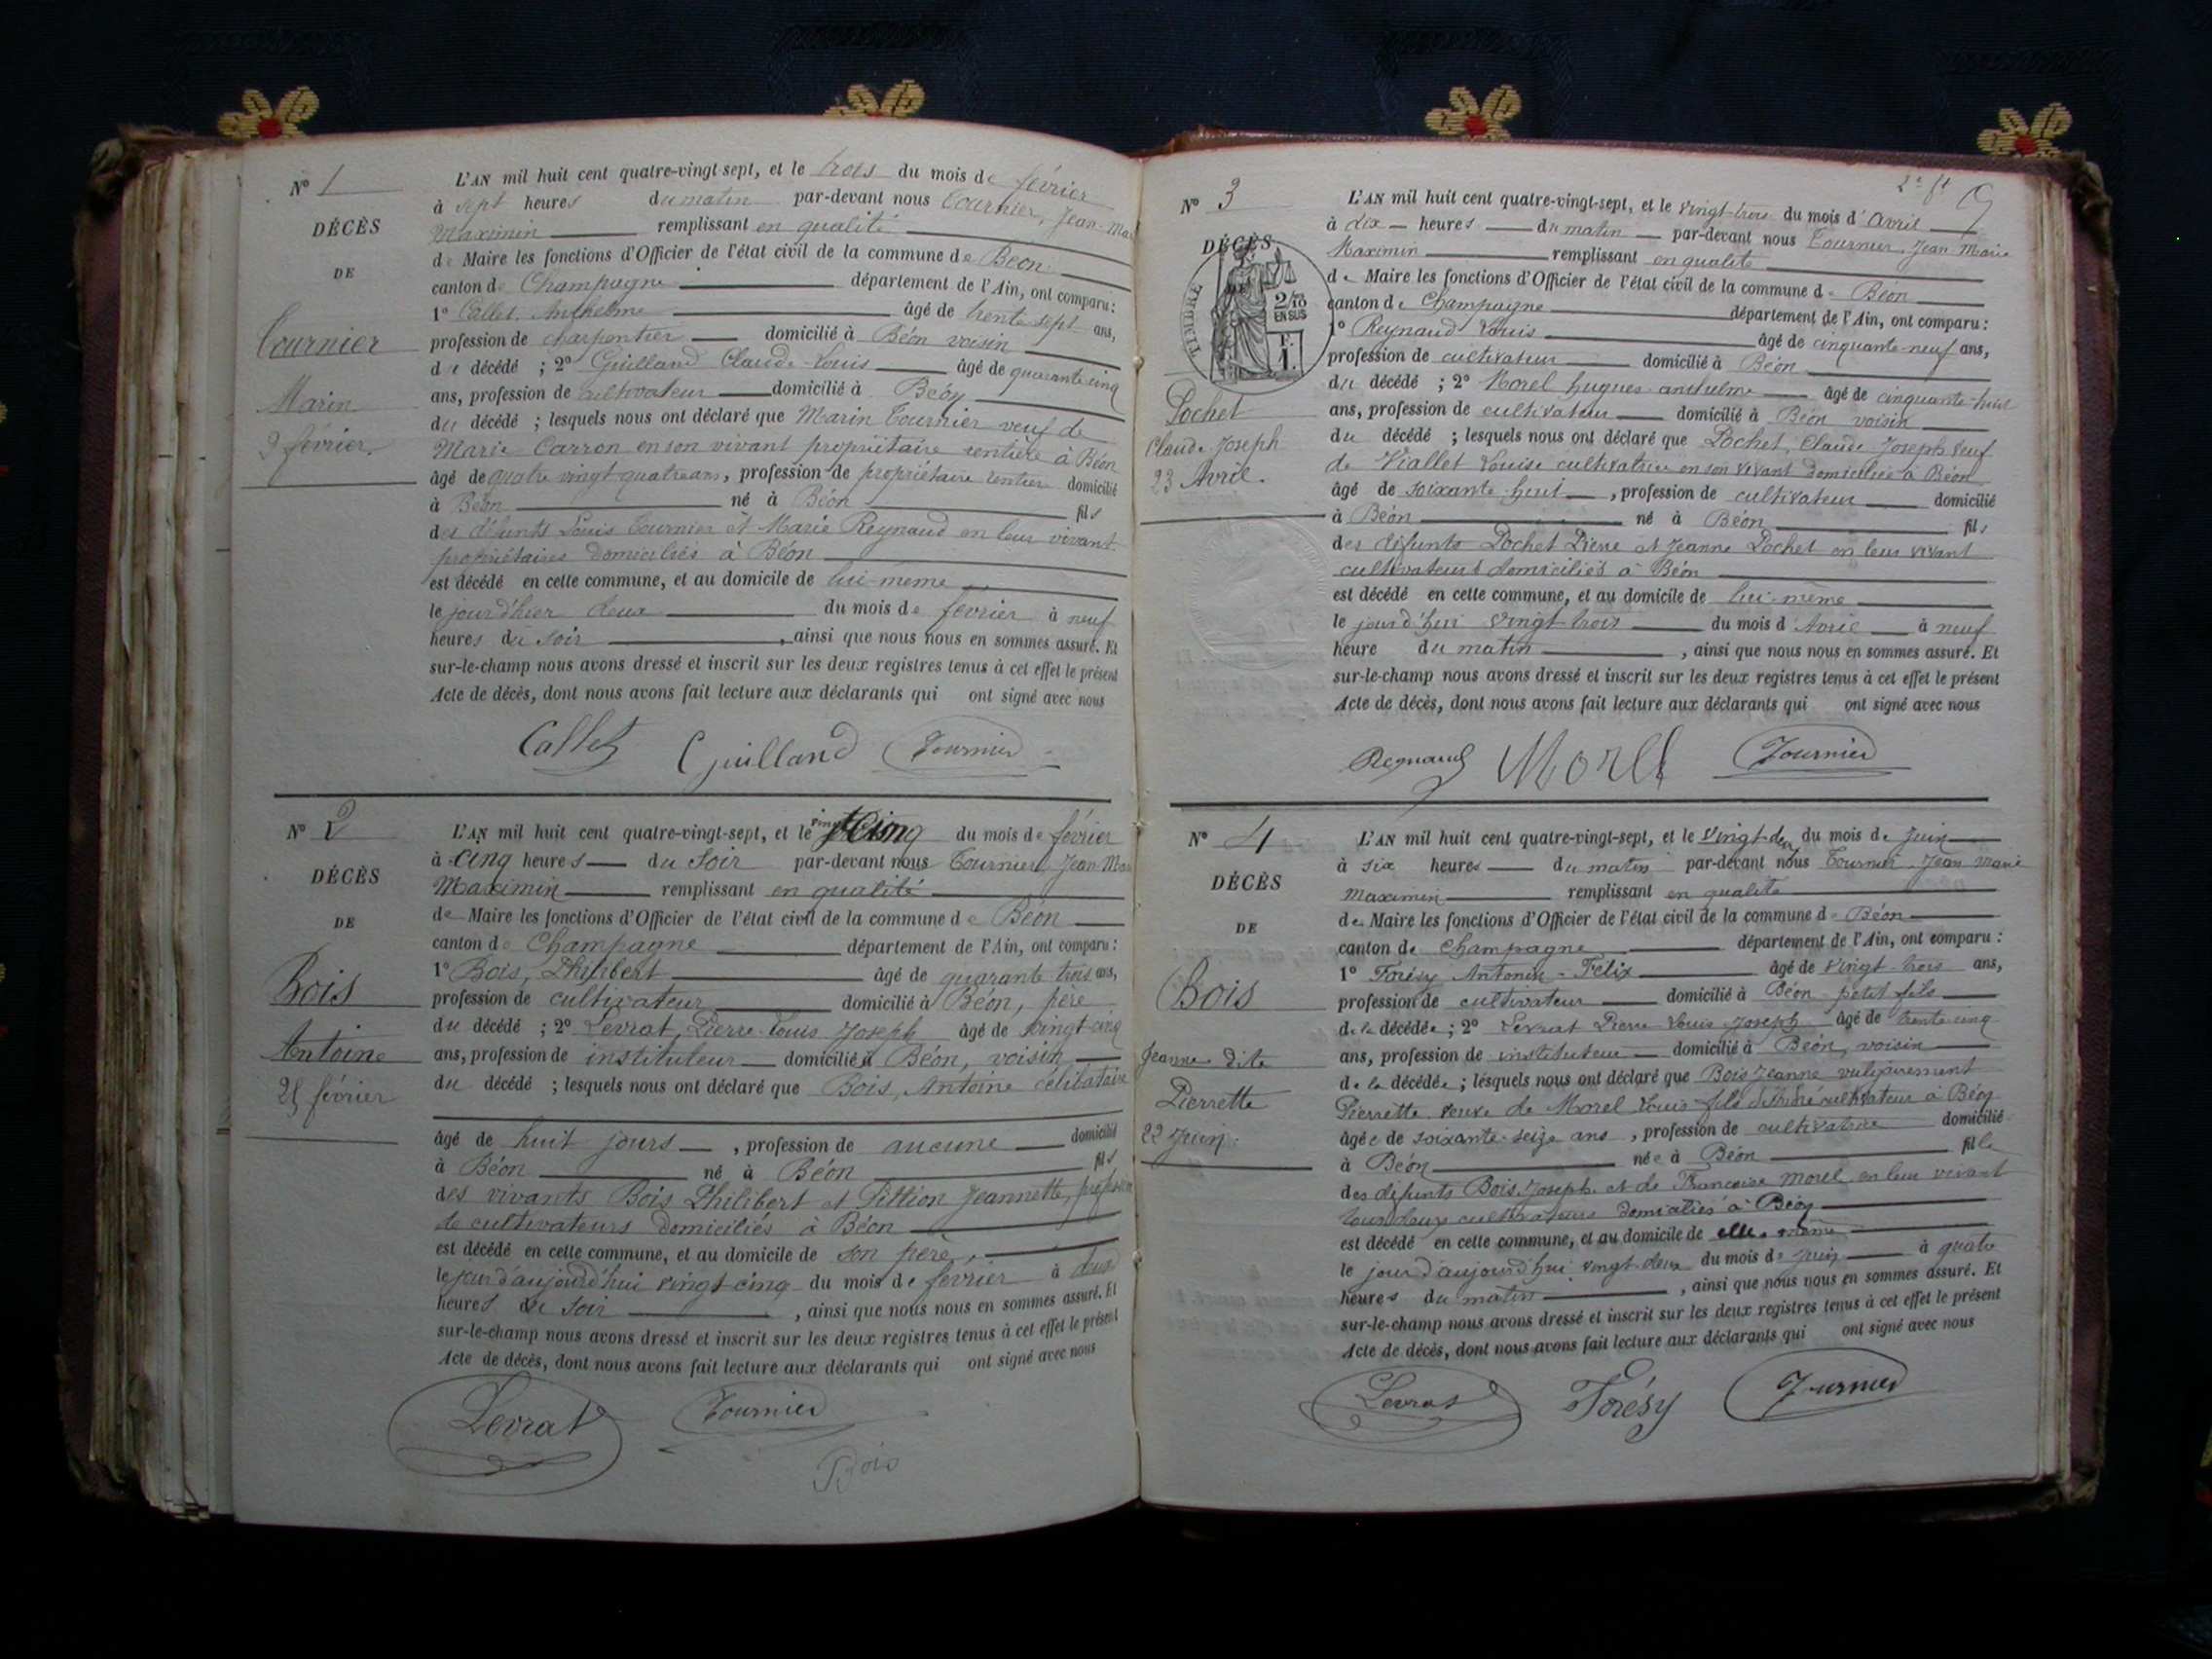 N° 1
DÉCÈS
DE
Tournier
Marin
3 février.
L'AN mil huit cent quatre-vingt sept, et le trois du mois de février
à sept heures du matin par-devant nous Tournier, Jean-Mar
Maximin remplissant en qualité
de Maire les fonctions d'Officier de l'état civil de la commune de Béon
canton de Champagne département de l'Ain, ont comparu:
1° Callet Anthelme âgé de trente sept ans,
profession de charpentier domicilié à Béon voisin
du décédé ; 2° Guilland Claude-Louis âgé de quarante cinq
ans, profession de cultivateur domicilié à Béon
du décédé ; lesquels nous ont déclaré que Marin Tournier veuf de
Marie Carron en son vivant propriétaire rentière à Béon
âgé de quatre vingt quatre ans, profession de propriétaire rentier domicilié
à Béon né à Béon fils
des défunts Louis Tournier et Marie Reynaud en leur vivant
propriétaires domiciliés à Béon
est décédé en cette commune, et au domicile de lui-même
le jour d'hier deux du mois de février à neuf
heures du soir, ainsi que nous nous en sommes assuré. Et
sur-le-champ nous avons dressé et inscrit sur les deux registres tenus à cet effet le présent
Acte de décès, dont nous avons fait lecture aux déclarants qui ont signé avec nous
Callet Guilland Tournier
N° 2
DÉCÈS
DE
Bois
Antoine
25 février
L'AN mil huit cent quatre-vingt-sept, et le vingt cinq du mois de février
à cinq heures du soir par-devant nous Tournier, Jean Mar
Maximin remplissant en qualité
de Maire les fonctions d'Officier de l'état civil de la commune de Béon
canton de Champagne département de l'Ain, ont comparu :
1° Bois, Philibert âgé de quarante trois ans,
profession de cultivateur domicilié à Béon, père
du décédé ; 2° Levrat, Pierre-Louis Joseph âgé de vingt-cinq
ans, profession de instituteur domicilié à Béon, voisin
du décédé ; lesquels nous ont déclaré que Bois, Antoine célibataire
âgé de huit jours, profession de aucune domicilié
à Béon né à Béon fils
des vivants Bois Philibert et Pittion Jeannette,
de cultivateurs domiciliés à Béon
est décédé en cette commune, et au domicile de son père,
le jour d'aujourd'hui vingt-cinq du mois de février à deux
heures du soir, ainsi que nous nous en sommes assuré. Et
sur-le-champ nous avons dressé et inscrit sur les deux registres tenus à cet effet le présent
Acte de décès, dont nous avons fait lecture aux déclarants qui ont signé avec nous
Levrat Tournier
Bois
2e ft
N° 3
DÉCÈS
TIMBRE
2/10
EN SUS
F.
1.
Pochet
Claude Joseph
23 Avril.
L'AN mil huit cent quatre-vingt-sept, et le vingt-trois du mois d'Avril
à dix heures du matin par-devant nous Tournier, Jean-Marie
Maximin remplissant en qualité
de Maire les fonctions d'Officier de l'état civil de la commune de Béon
canton de Champagne département de l'Ain, ont comparu :
1° Reynaud Louis âgé de cinquante-neuf ans,
profession de cultivateur domicilié à Béon
du décédé ; 2° Morel Hugues anthelme âgé de cinquante-huit
ans, profession de cultivateur domicilié à Béon voisin
du décédé ; lesquels nous ont déclaré que Pochet, Claude Joseph veuf
de Viallet Louise cultivatrice en son vivant domiciliée à Béon
âgé de soixante-huit, profession de cultivateur domicilié
à Béon né à Béon fils
des défunts Pochet Pierre et Jeanne Pochet en leur vivant
cultivateurs domiciliés à Béon
est décédé en cette commune, et au domicile de lui-même
le jour d'hui vingt-trois du mois d'Avril à neuf
heure du matin, ainsi que nous nous en sommes assuré. Et
sur-le-champ nous avons dressé et inscrit sur les deux registres tenus à cet effet le présent
Acte de décès, dont nous avons fait lecture aux déclarants qui ont signé avec nous
Regnaud Morel Tournier
N° 4
DÉCÈS
DE
Bois
Jeanne dite
Pierrette
22 Juin.
L'AN mil huit cent quatre-vingt-sept, et le vingt-deux du mois de Juin
à six heures du matin par-devant nous Tournier, Jean Marie
Maximin remplissant en qualité
de Maire les fonctions d'Officier de l'état civil de la commune de Béon
canton de Champagne département de l'Ain, ont comparu :
1° Forésy Antonin-Félix âgé de vingt-trois ans,
profession de cultivateur domicilié à Béon petit fils
de la décédée ; 2° Levrat Pierre Louis Joseph âgé de trente-cinq
ans, profession de instituteur domicilié à Béon, voisin
de la décédée ; lesquels nous ont déclaré que Bois Jeanne vulgairement
Pierrette veuve de Morel Louis fils cultivateur à Béon
âgée de soixante-seize ans, profession de cultivatrice domicilié
à Béon née à Béon fille
des défunts Bois Joseph et de Françoise Morel en leur vivant
tous deux cultivateurs domiciliés à Béon
est décédé en cette commune, et au domicile de elle-même
le jour d'aujourd'hui vingt-deux du mois de Juin à quatre
heures du matin, ainsi que nous nous en sommes assuré. Et
sur-le-champ nous avons dressé et inscrit sur les deux registres tenus à cet effet le présent
Acte de décès, dont nous avons fait lecture aux déclarants qui ont signé avec nous
Levrat Forésy Tournier